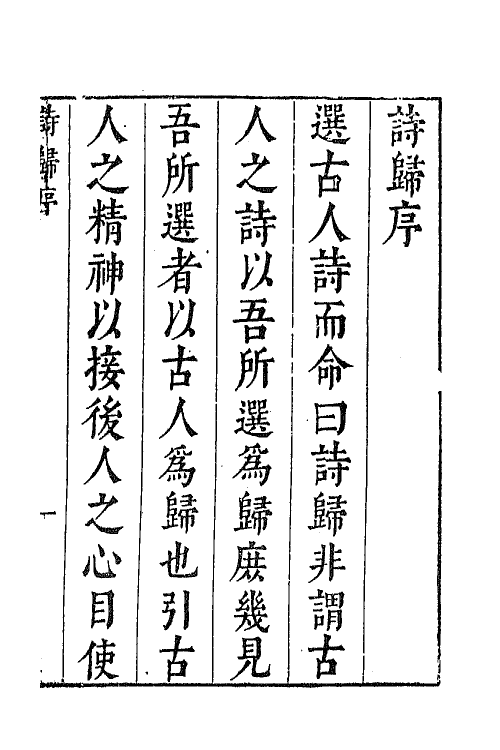 詩歸序
選古人詩而命曰詩歸非謂古
人之詩以吾所選爲歸庶幾見
吾所選者以古人爲歸也引古
人之精神以接後人之心目使
詩歸序
一